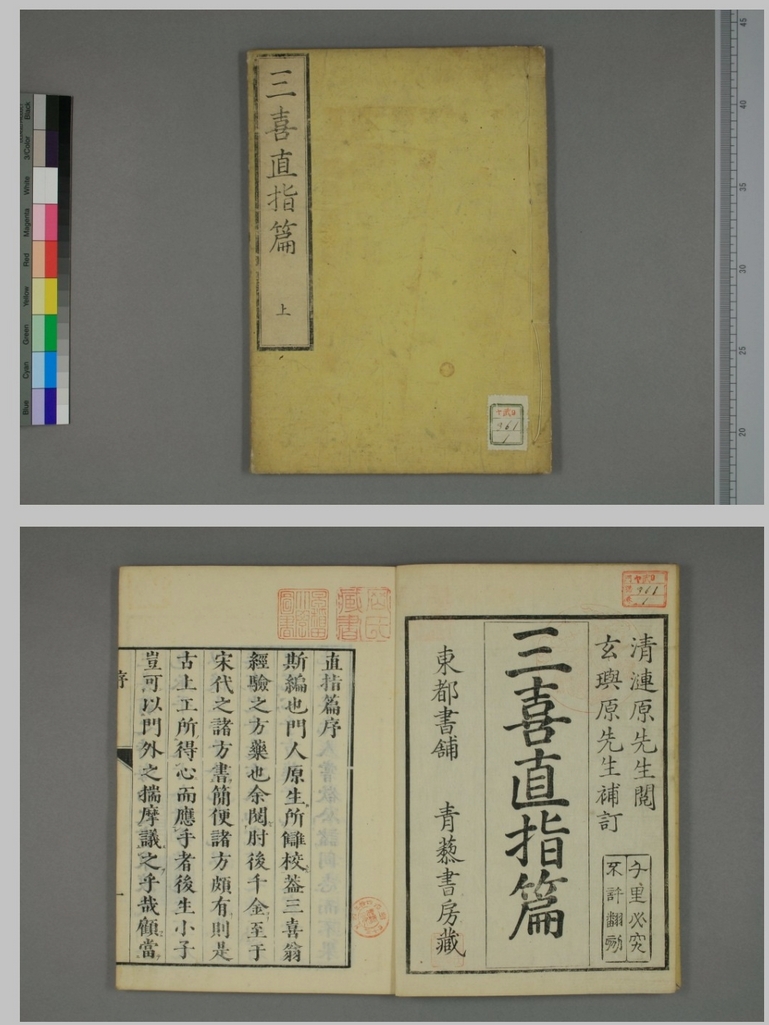 三喜直指篇
上
361
1
Black
3/Color
White
Magenta
Red
Yellow
Green
Cyan
Blue
45
40
35
30
25
20
361
1
清漣原先生閲
玄璵原先生補訂
千里必究
不許翻刻
三喜直指篇
東都書舖 青藜書房藏
藏書
直指篇序
斯編也門人原生所讎校葢三喜翁
經驗之方藥也余閲肘後千金至于
宋代之諸方書簡便諸方頗有則是
古上工所得心而應手者後生小子
豈可以門外之揣摩議之乎哉顧當
序
一